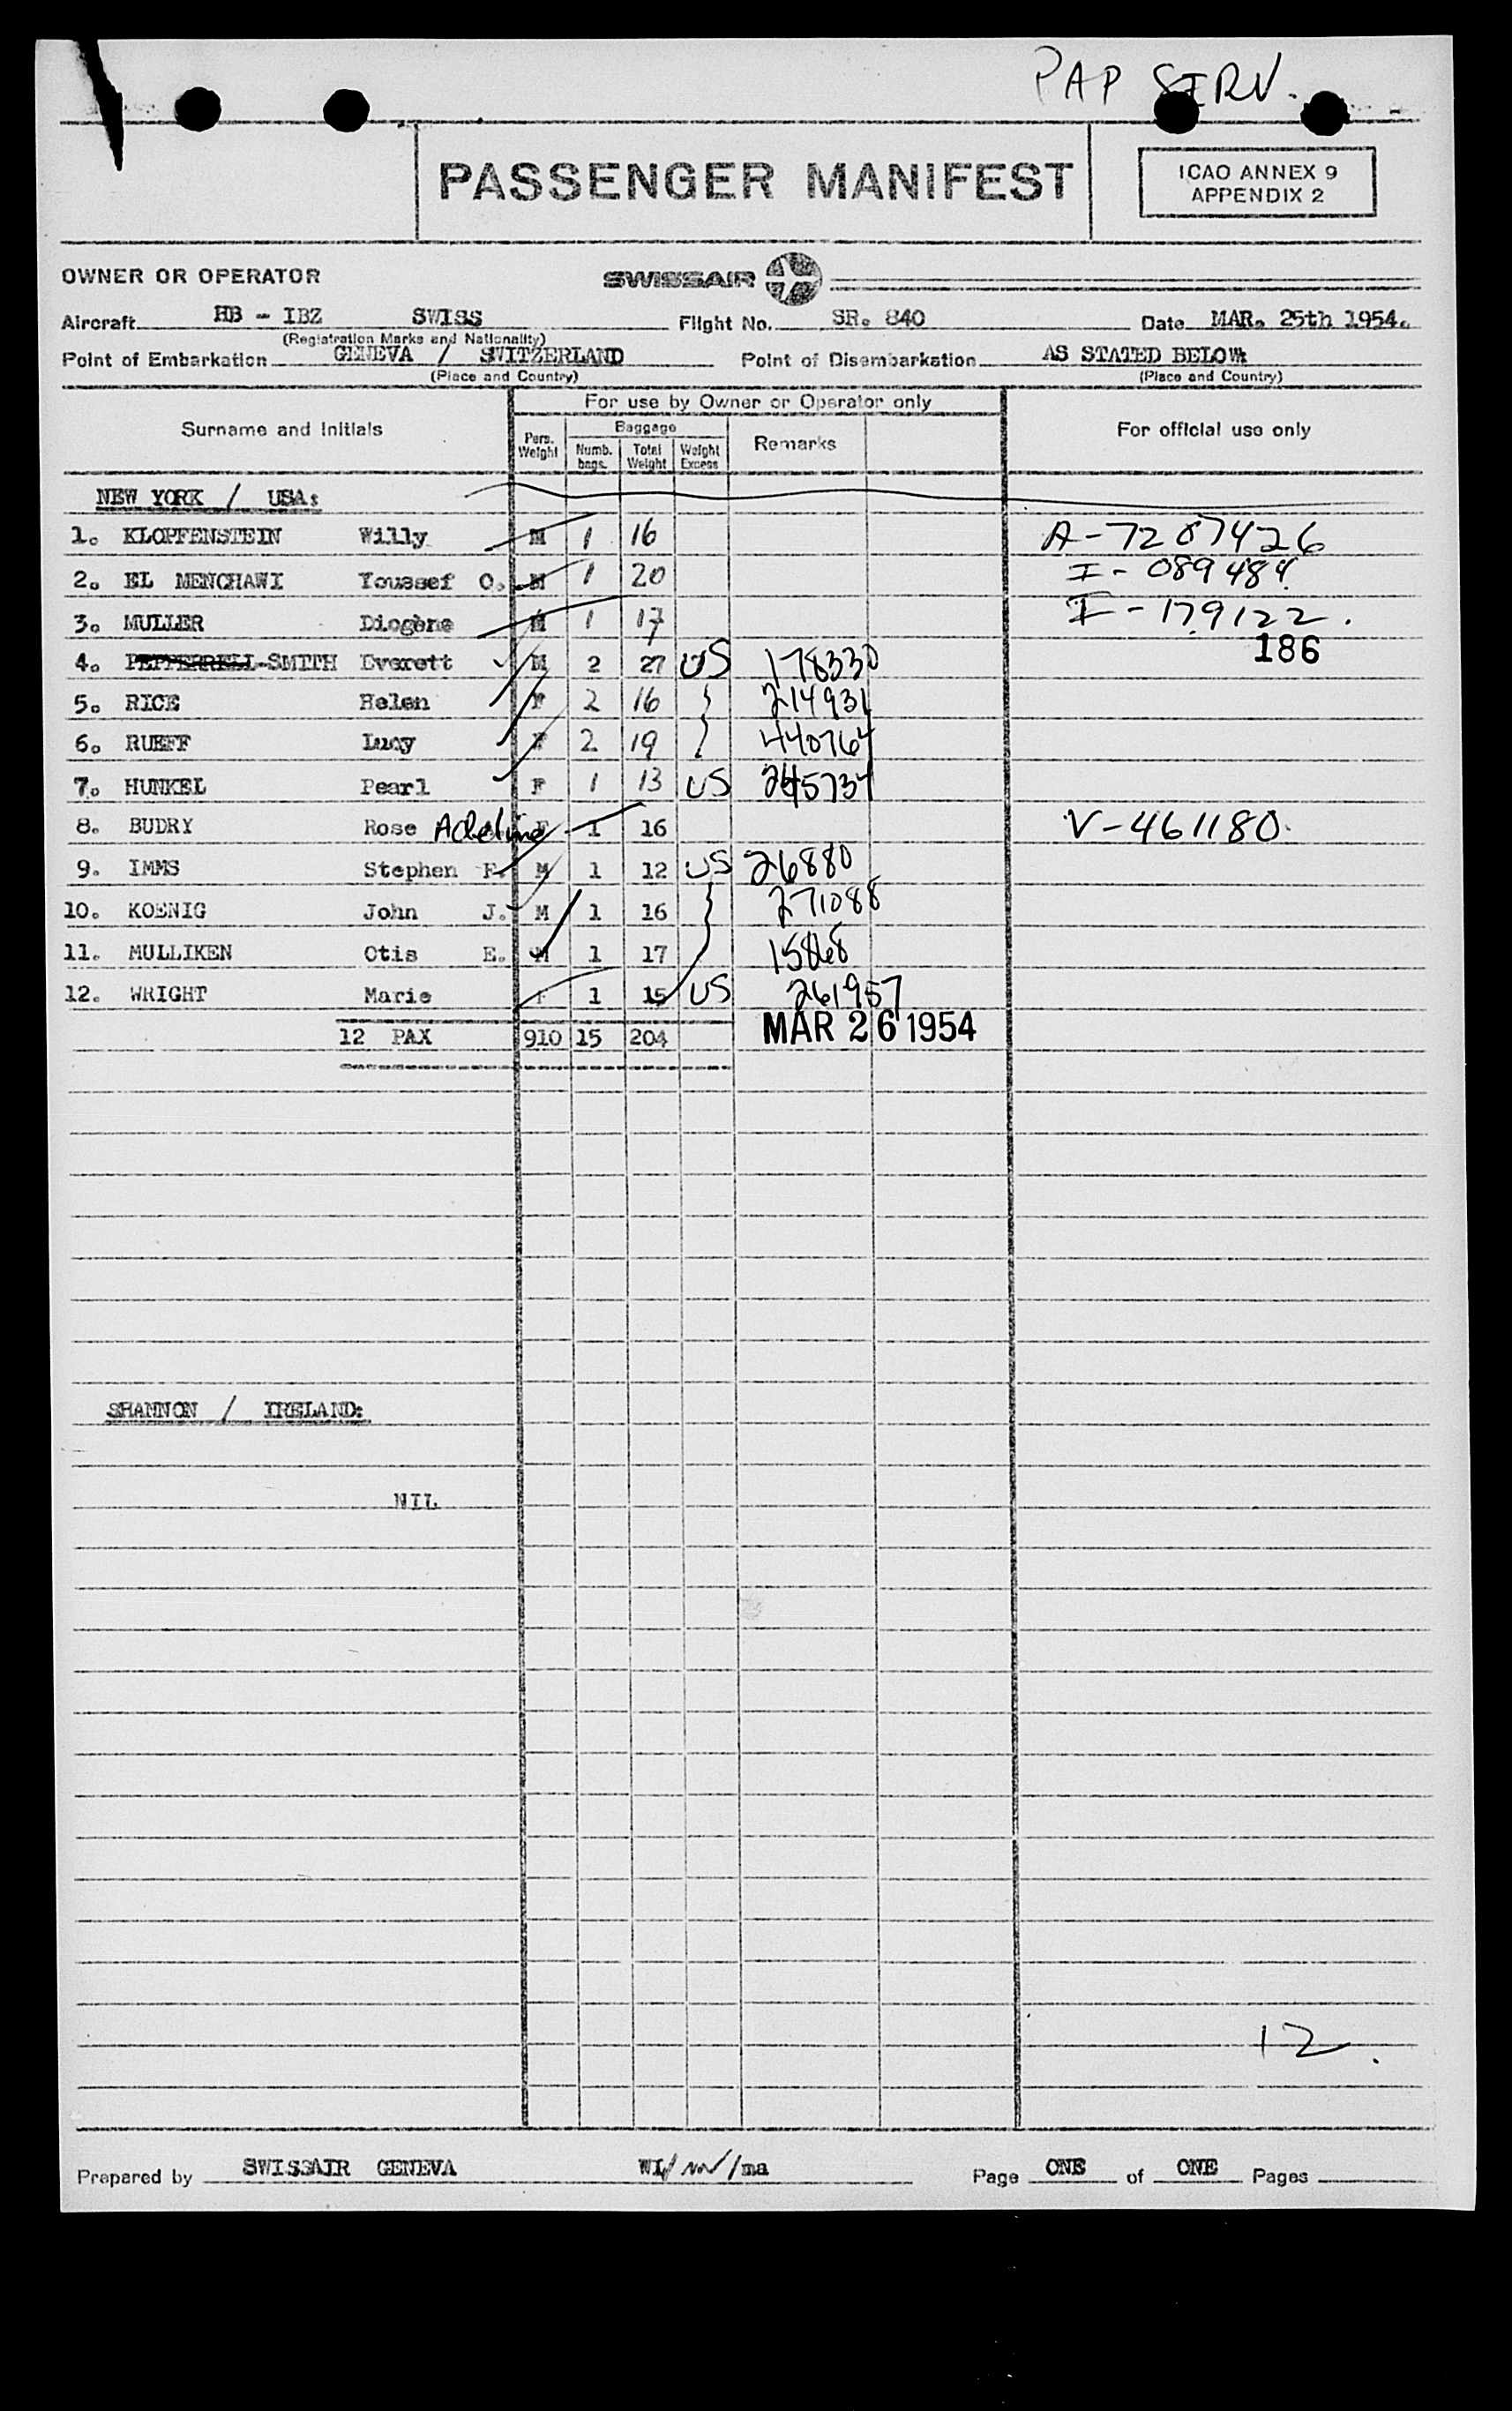 PAP SERV.
PASSENGER MANIFEST
ICAO ANNEX 9
APPENDIX 2
OWNER OR OPERATOR SWISSAIR
Aircraft HB - IBZ SWISS Flight No. SR. 840 Date MAR. 25th 1954.
(Registration Marks and Nationality)
Point of Embarkation GENEVA / SWITZERLAND Point of Disembarkation AS STATED BELOW
(Place and Country) (Place and Country)
For use by Owner or Operator only
Surname and Initials Pers. Weight Baggage Numb. bags. Total Weight Weight Excess Remarks For official use only
NEW YORK / USA:
1. KLOPFENSTEIN Willy M 1 16 A-7207426
2. EL MENCHAWI Youssef O. M 1 20 I-089484
3. MULLER Diogène M 1 17 I-179122.
186
4. PEPPERRELL-SMITH Everett M 2 27 US 178330
5. RICE Helen F 2 16 214931
6. RUEFF Lucy F 2 19 440764
7. HUNKEL Pearl F 1 13 US 245734
8. BUDRY Rose Adeline F 1 16 V-461180.
9. IMMS Stephen F. M 1 12 US 26880
10. KOENIG John J. M 1 16 271088
11. MULLIKEN Otis E. M 1 17 15868
12. WRIGHT Marie F 1 15 US 261957
12 PAX 910 15 204 MAR 26 1954
SHANNON / IRELAND:
NIL
12.
Prepared by SWISSAIR GENEVA /ma Page ONE of ONE Pages